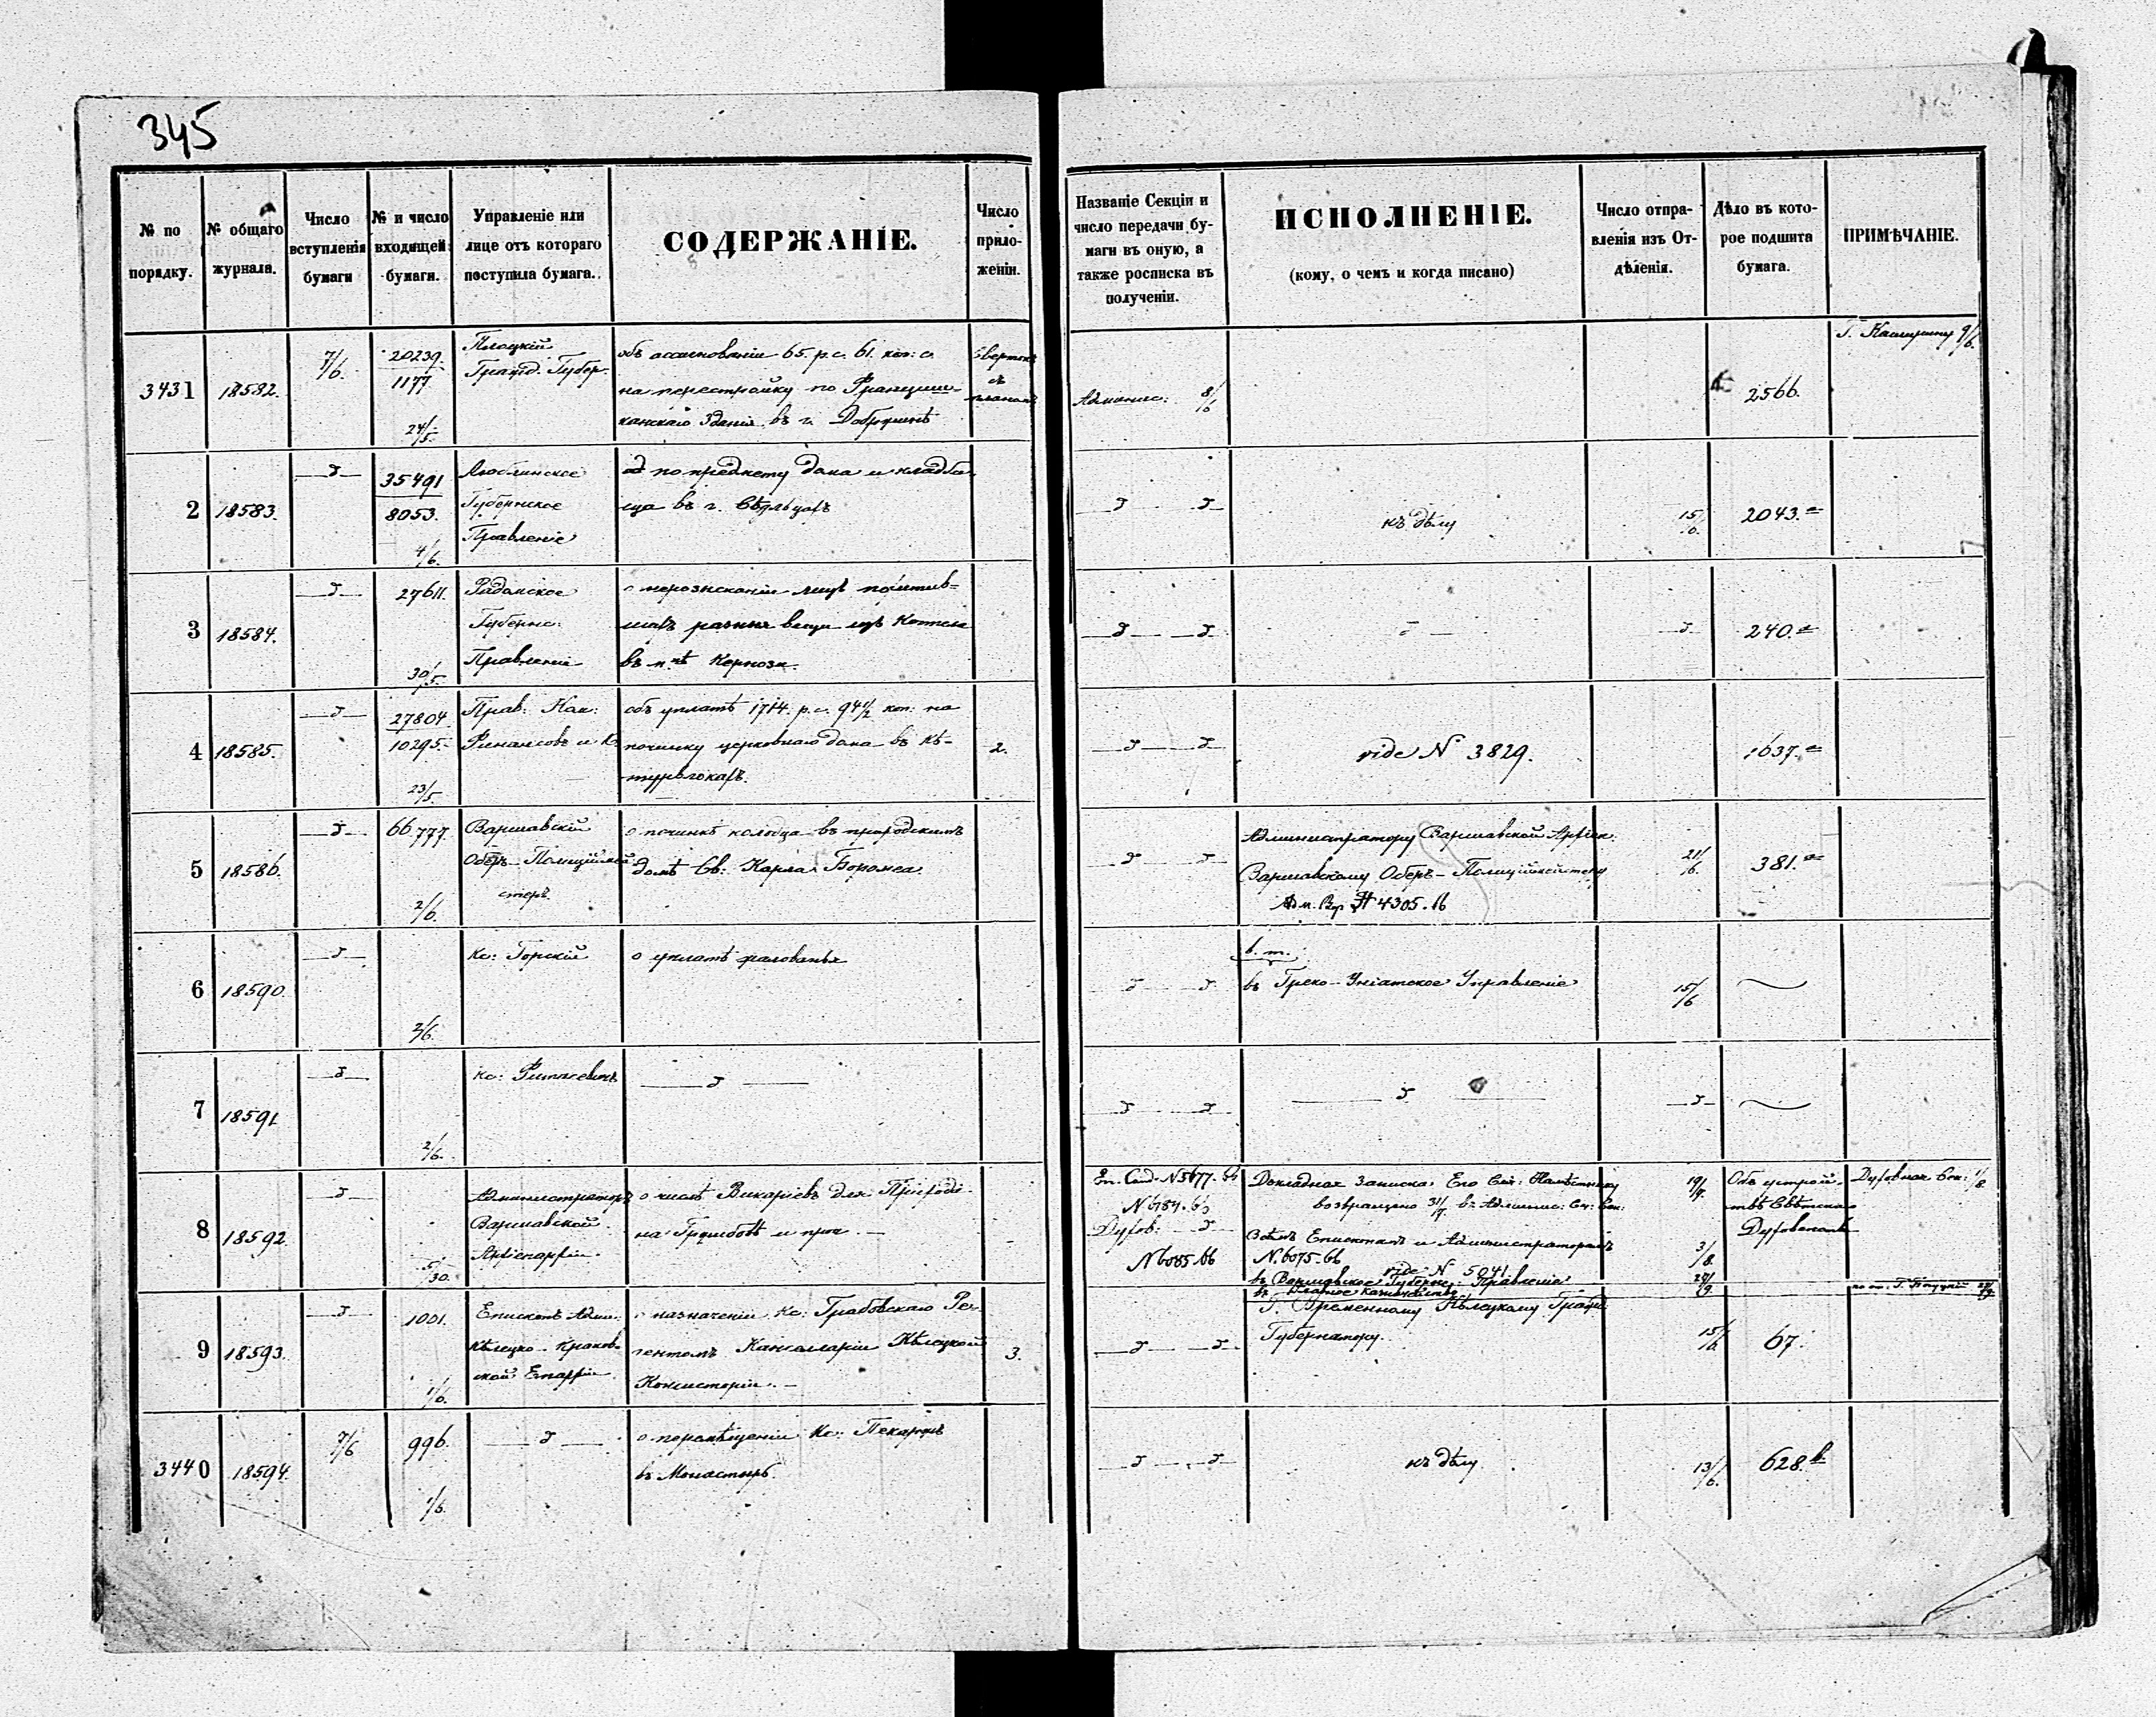 345
№ по порядку.
№ общаго журнала.
Число вступленія бумаги
№ и число входящей бумаги.
Управленіе или лице отъ котораго поступила бумага.
СОДЕРЖАНІЕ.
Число приложеніи.
Названіе Секціи и число передачи бумаги въ оную, а также росписка въ полученіи.
ИСПОЛНЕНІЕ.
(кому, о чемъ и когда писано)
Число отправленія изъ Отдѣленія.
Дѣло въ которое подшита бумага.
ПРИМѢЧАНІЕ.
3431
18582.
7/6.
20239.
1177
24/5.
Плоцкій
Гражд. Губер.
объ ассигнованіи 65. р. с. 61. коп: с.
на перестройку по Францис-
канскаго зданія въ г. Добржинѣ
Свертокъ
съ
планами
8/6
2566.
9/6.
2
18583.
35491
8053.
4/6.
Люблинское
Губернское
Правленіе
по предмету дома и кладби-
ща въ г. Сѣдльцахъ
къ дѣлу
15/6.
2043.а
3
18584.
27611.
30/5.
Радомское
Губернс:
Правленіе
о нерозысканіи лицъ похитив-
шихъ разныя вещи изъ Костела
въ
240.а
4
18585.
27804.
10295.
23/5.
Прав: Ком:
Финансовъ и К.
объ уплатѣ 1714. р. с. 94 1/2 коп: на
починку церковнаго дома въ
2.
vide N° 3829.
1637.а
5
18586.
66777.
2/6.
Варшавскій
Оберъ-Полиціймей
стеръ.
о починкѣ колодца въ приходскомъ
домѣ Св: Карла Боромея.
Администратору Варшавской Архіеп.
Варшавскому Оберъ-Полиціймейстеру
№ 4305.66
21/6.
381.а
6
18590.
2/6.
Кс: Горскій
о уплатѣ жалованья
в. т.
въ Греко-Уніатское Управленіе
15/6
7
18591
2/6.
Кс:
8
18592
5/30.
Администраторъ
Варшавской
Архіепархіи.
о числѣ Викаріевъ для Приходо
на Гржибовѣ и проч. —
N 5677.
N 6184.
Духов:
N 6085.66
Докладная Записка: Его Сія: Намѣстнику
возвращено 31/7 въ Админис: Сек:
Всѣмъ Епископамъ и Администраторамъ
N. 6075.66
vide N 5041
въ Варшавское Губернс: Правленіе
въ Главное Казначейство
19/7.
3/8.
Объ устрой-
ствѣ Свѣтскаго
Духовенства
Духовная Сек:
9
18593.
1001.
1/6.
Епископъ Адми:
Кѣлецко-Краков-
ской Епархіи
о назначеніи Кс: Грабовскаго Ре-
гентомъ Канцеляріи Кѣлецкой
Консисторіи. —
3.
Г. Временному Кѣлецкому Гражд:
Губернатору.
15/6
67.
3440
18594.
7/6
996.
1/6.
о перемѣщеніи Кс:
въ Монастырь.
къ дѣлу
13/6.
628.в